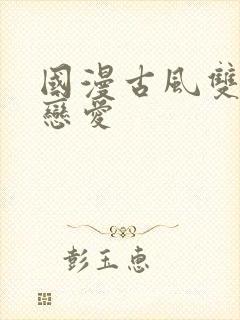 國漫古風雙
戀愛
彭玉惠